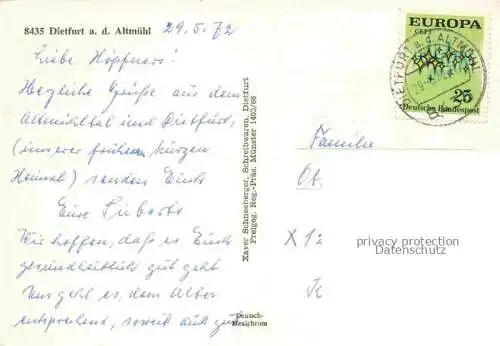 8435 Dietfurt a. d. Altmühl 29.5.72
Liebe Höpfners!
Herzliche Grüße aus dem
Altmühltal und Dietfurt,
(unserer früheren kurzen
Heimat) senden Euch
Eure
Wir hoffen, daß es Euch
gesundheitlich gut geht
Uns geht es, dem Alter
entsprechend, soweit auch gut
Xaver Schneeberger, Schreibwaren, Dietfurt
Freigeg. Reg.-Präs. Münster 1402/68
Deutsch-
Mexichrom
EUROPA
CEPT
DIETFURT a. d. ALTMÜHL
25
Deutsche Bundespost
Familie
Ot.
X 12
K
privacy protection
Datenschutz